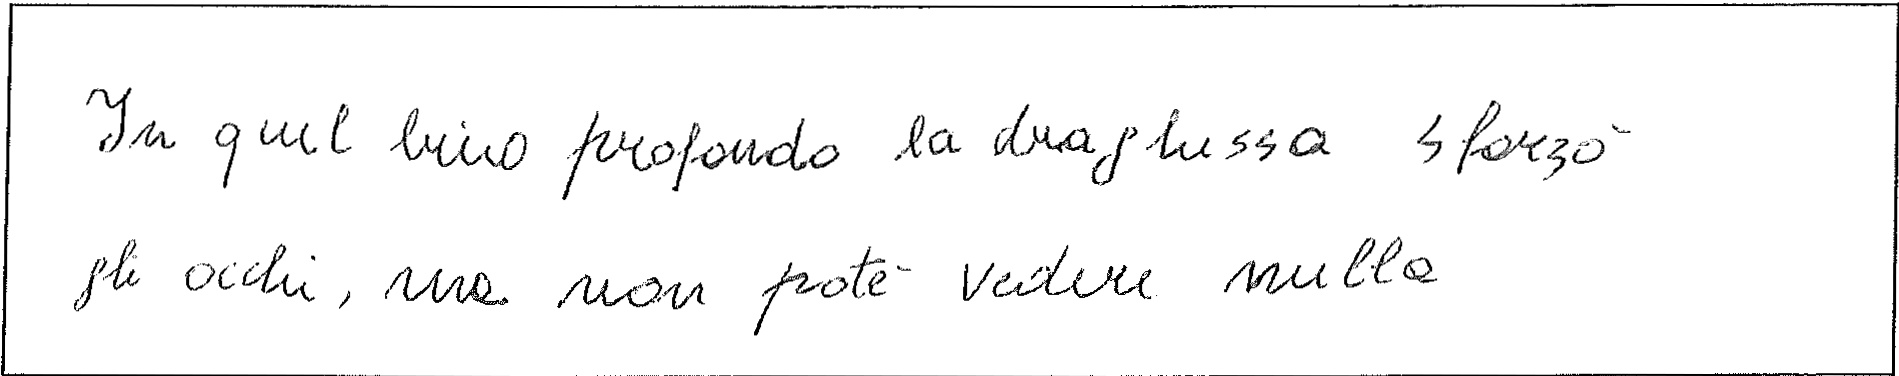 In quel buio profondo la draghessa sforzò
gli occhi, ma non potè vedere nulla